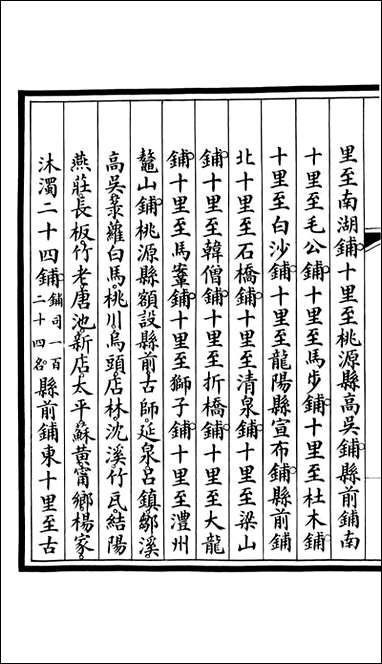 里至南湖鋪十里至桃源縣高吳鋪縣前鋪南
十里至毛公鋪十里至馬步鋪十里至杜木鋪
十里至白沙鋪十里至龍陽縣宣布鋪縣前鋪
北十里至石橋鋪十里至清泉鋪十里至梁山
鋪十里至韓僧鋪十里至折橋鋪十里至大龍
鋪十里至馬鞌鋪十里至獅子鋪十里至澧州
鼇山鋪桃源縣額設縣前古師延泉呂鎮鄒溪
高吳彔蘿白馬桃川烏頭店林沈溪竹瓦結陽
燕莊長板竹老唐池新店太平蘇黃甯鄉楊家
沐濁二十四鋪鋪司一百二十四名縣前鋪東十里至古